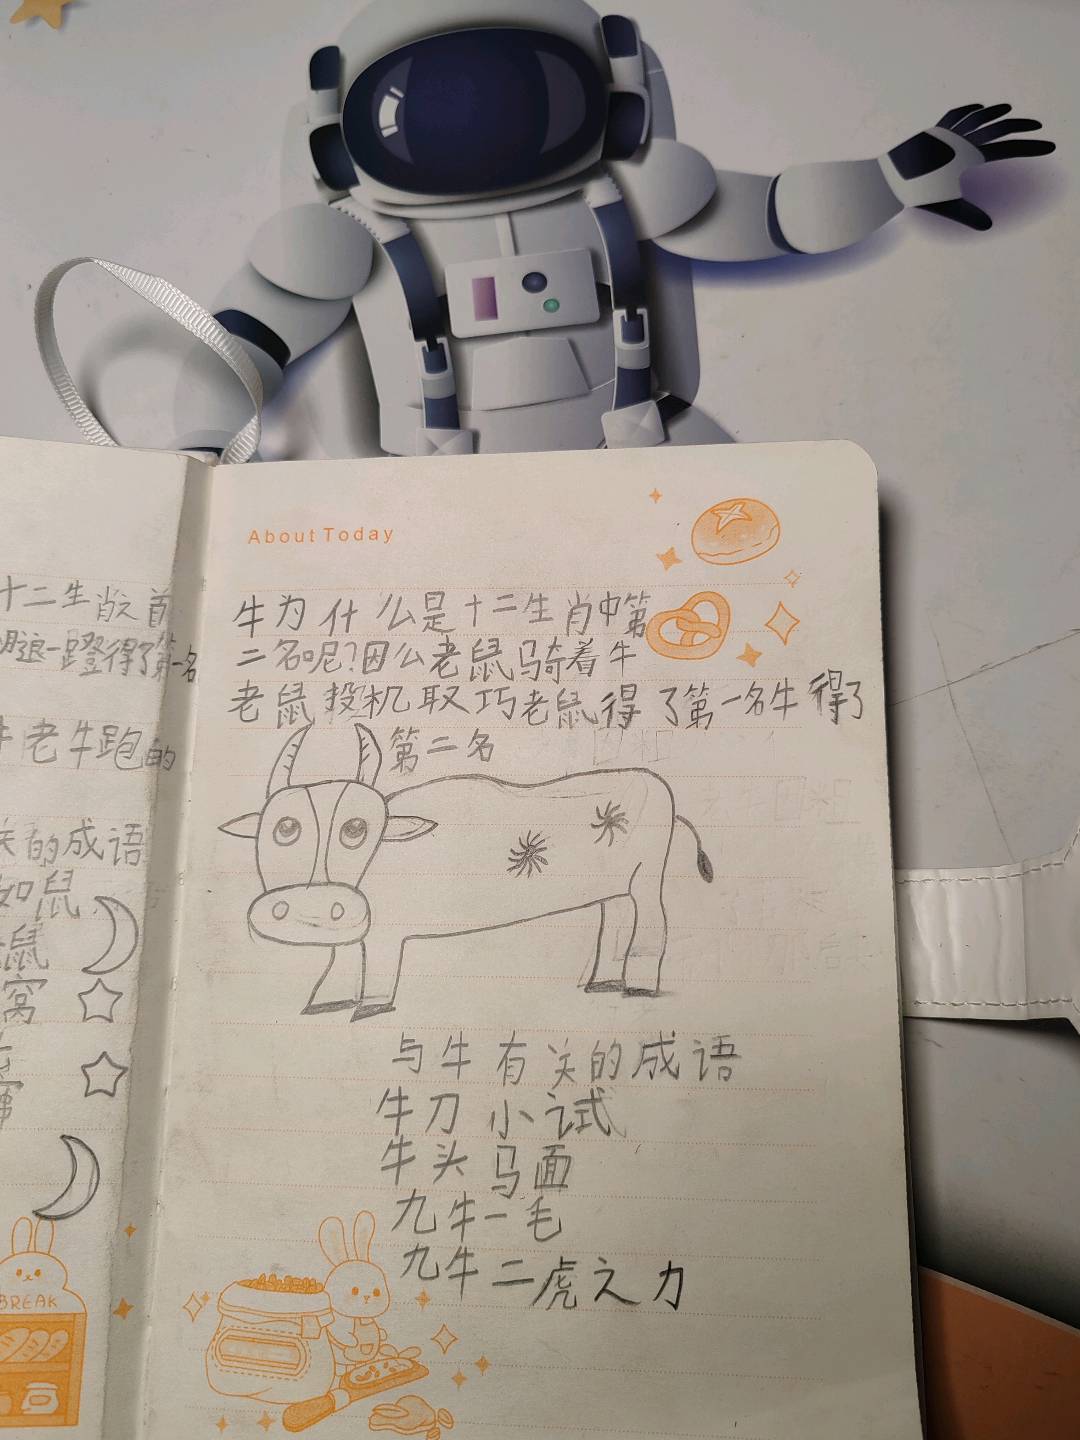 十二生肖之首
腿一蹬得了第一名
牛老牛跑的
关的成语
如鼠
鼠
窝
BREAK
About Today
牛为什么是十二生肖中第
二名呢?因么老鼠骑着牛
老鼠投机取巧老鼠得了第一名牛得了
第二名
与牛有关的成语
牛刀小试
牛头马面
九牛一毛
九牛二虎之力